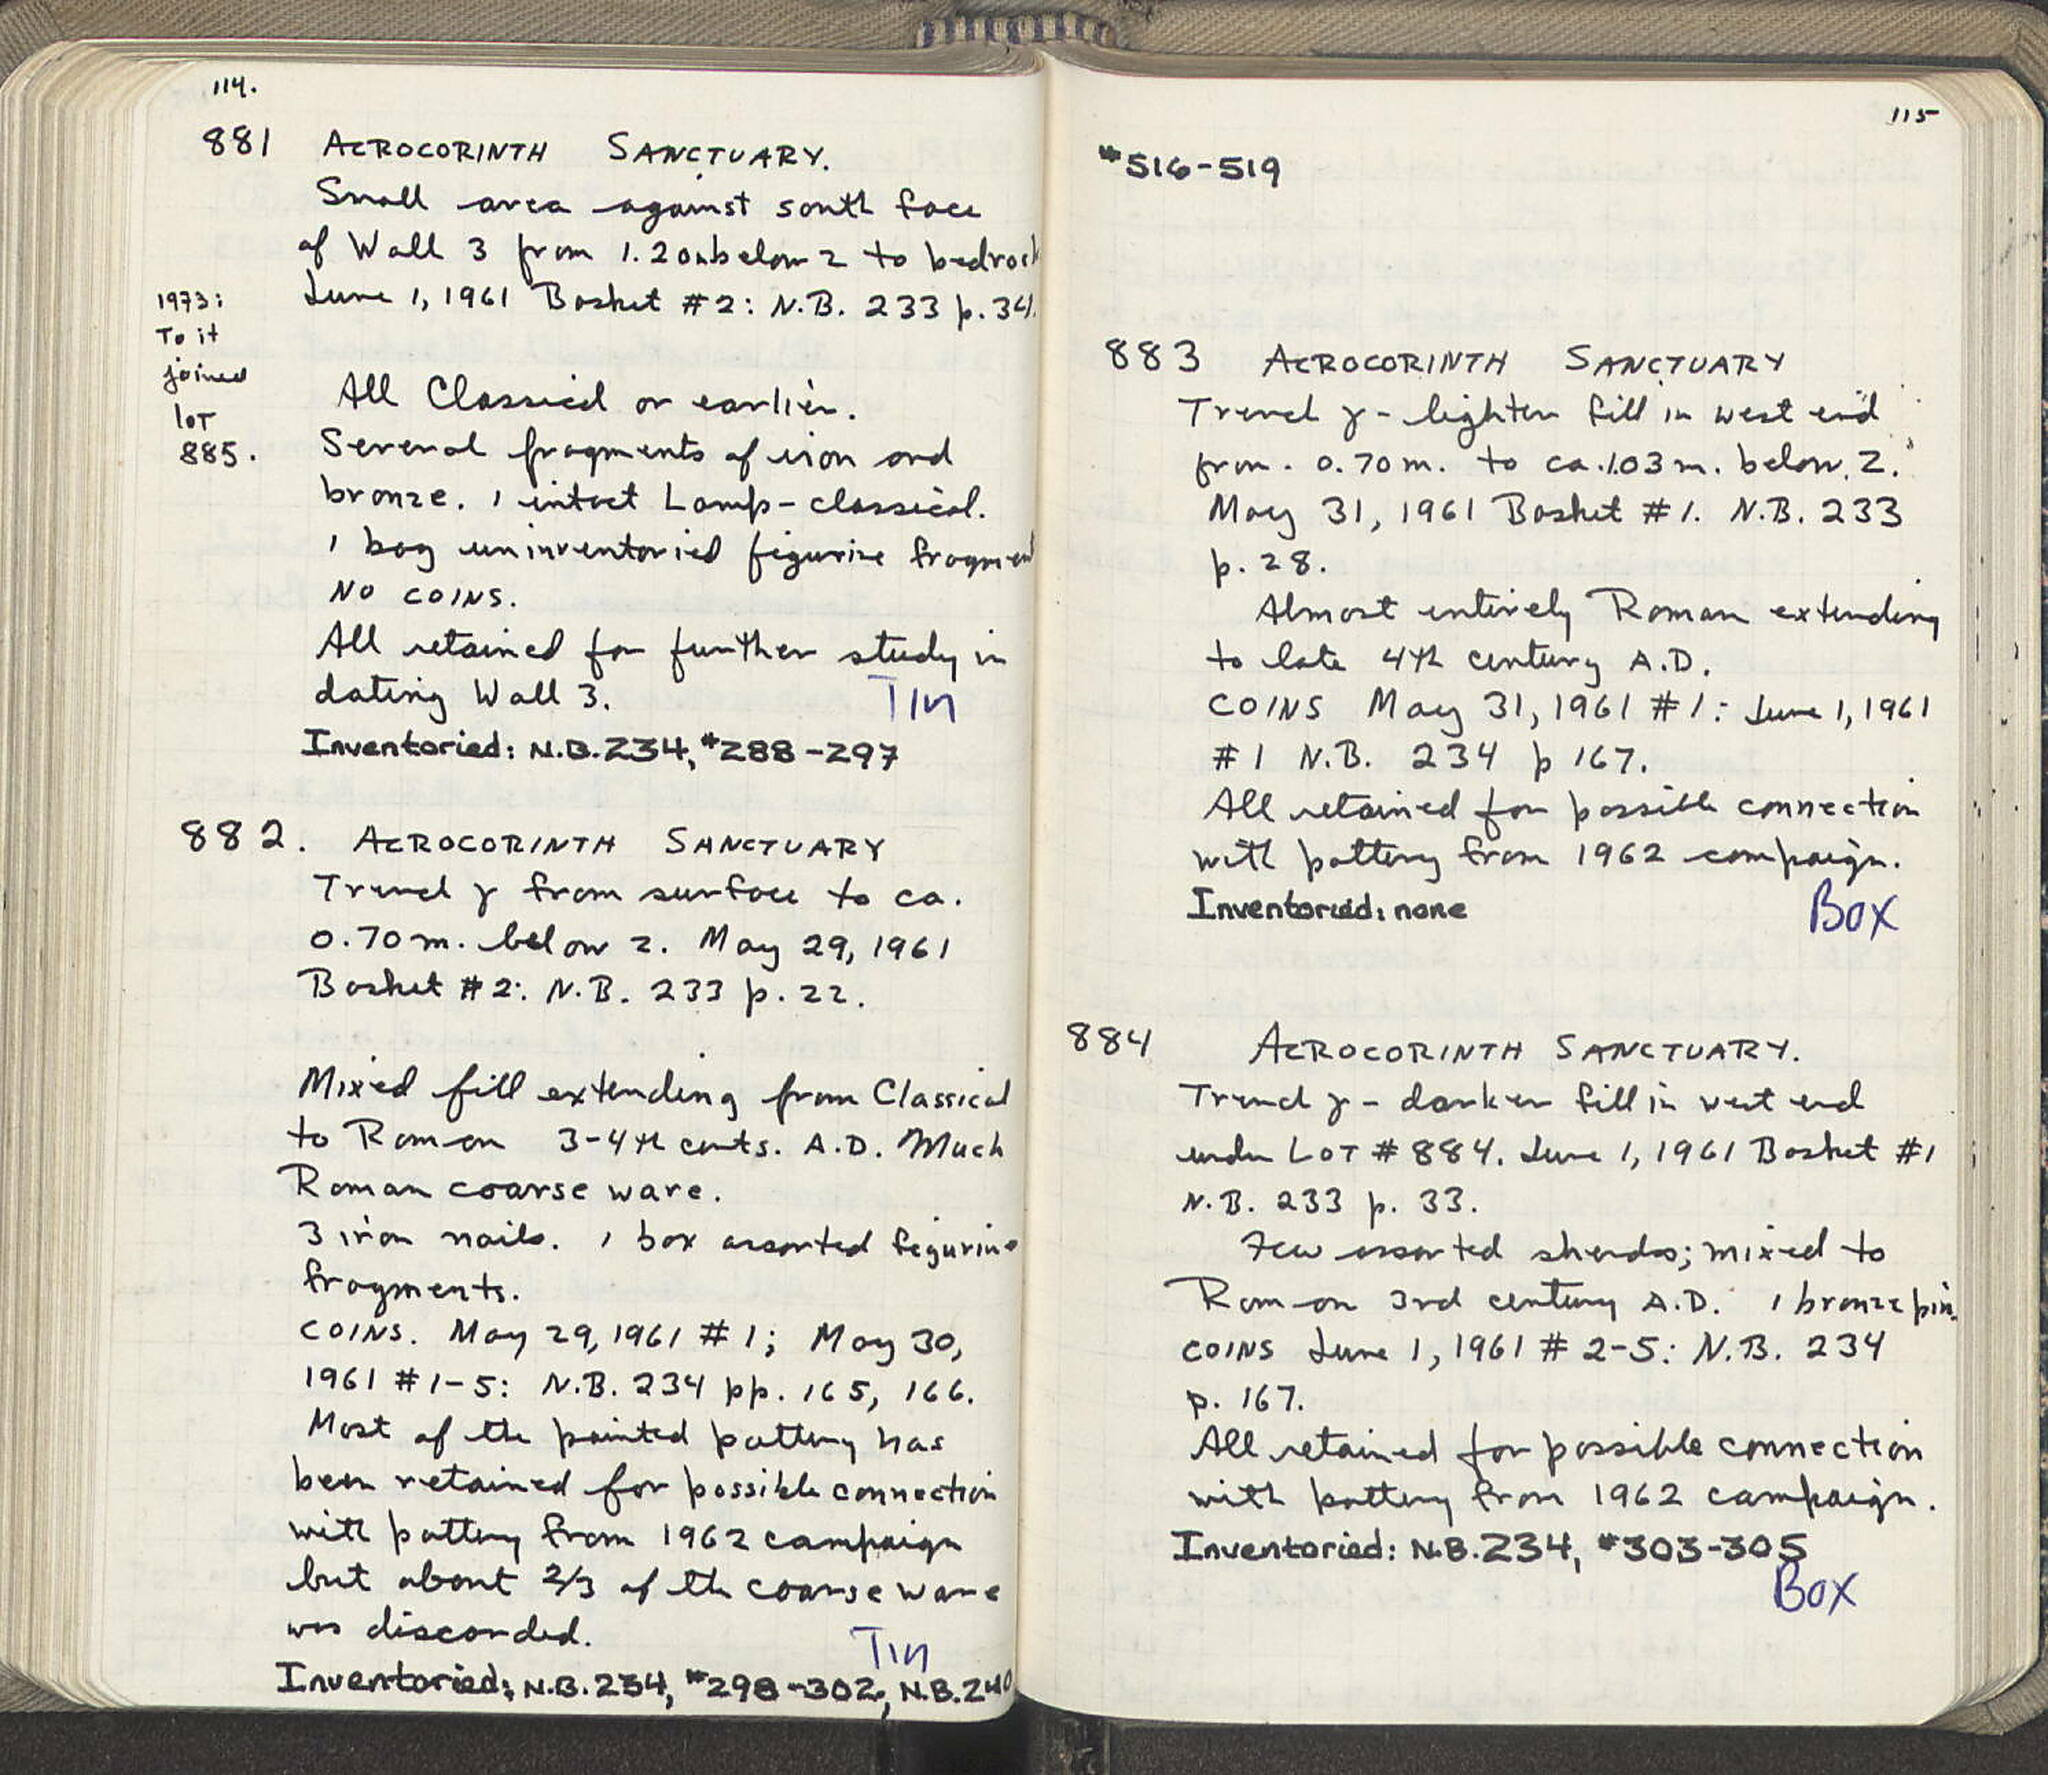 114.
881 ACROCORINTH SANCTUARY.
Small area against south face
of Wall 3 from 1.20m below z to bedrock
June 1, 1961 Basket #2: N.B. 233 p. 34.
1973:
To it
joined
lot
885.
All Classical or earlier.
Several fragments of iron and
bronze. 1 intact Lamp - classical.
1 bag uninventoried figurine fragmen
NO COINS.
All retained for further study in
dating Wall 3. TIN
Inventoried: N.B. 234, #288-297
882. ACROCORINTH SANCTUARY
Trench γ from surface to ca.
0.70m. below z. May 29, 1961
Basket #2: N.B. 233 p. 22.
Mixed fill extending from Classical
to Roman 3-4th cents. A.D. Much
Roman coarse ware.
3 iron nails. 1 box assorted figurine
fragments.
COINS. May 29, 1961 #1; May 30,
1961 #1-5: N.B. 234 pp. 165, 166.
Most of the painted pottery has
been retained for possible connection
with pottery from 1962 campaign
but about 2/3 of the coarse ware
was discarded. TIN
Inventoried: N.B. 234, #298-302, N.B. 240
115
#516-519
883 ACROCORINTH SANCTUARY
Trench γ - lighter fill in west end
from. 0.70m. to ca. 1.03m. below z.
May 31, 1961 Basket #1. N.B. 233
p. 28.
Almost entirely Roman extending
to late 4th century A.D.
COINS May 31, 1961 #1: June 1, 1961
#1 N.B. 234 p 167.
All retained for possible connection
with pottery from 1962 campaign.
Inventoried: none BOX
884 ACROCORINTH SANCTUARY.
Trench γ - darker fill in west end
under LOT #884. June 1, 1961 Basket #1
N.B. 233 p. 33.
Few assorted sherds; mixed to
Roman 3rd century A.D. 1 bronze pin.
COINS June 1, 1961 #2-5: N.B. 234
p. 167.
All retained for possible connection
with pottery from 1962 campaign.
Inventoried: N.B. 234, #303-305
BOX